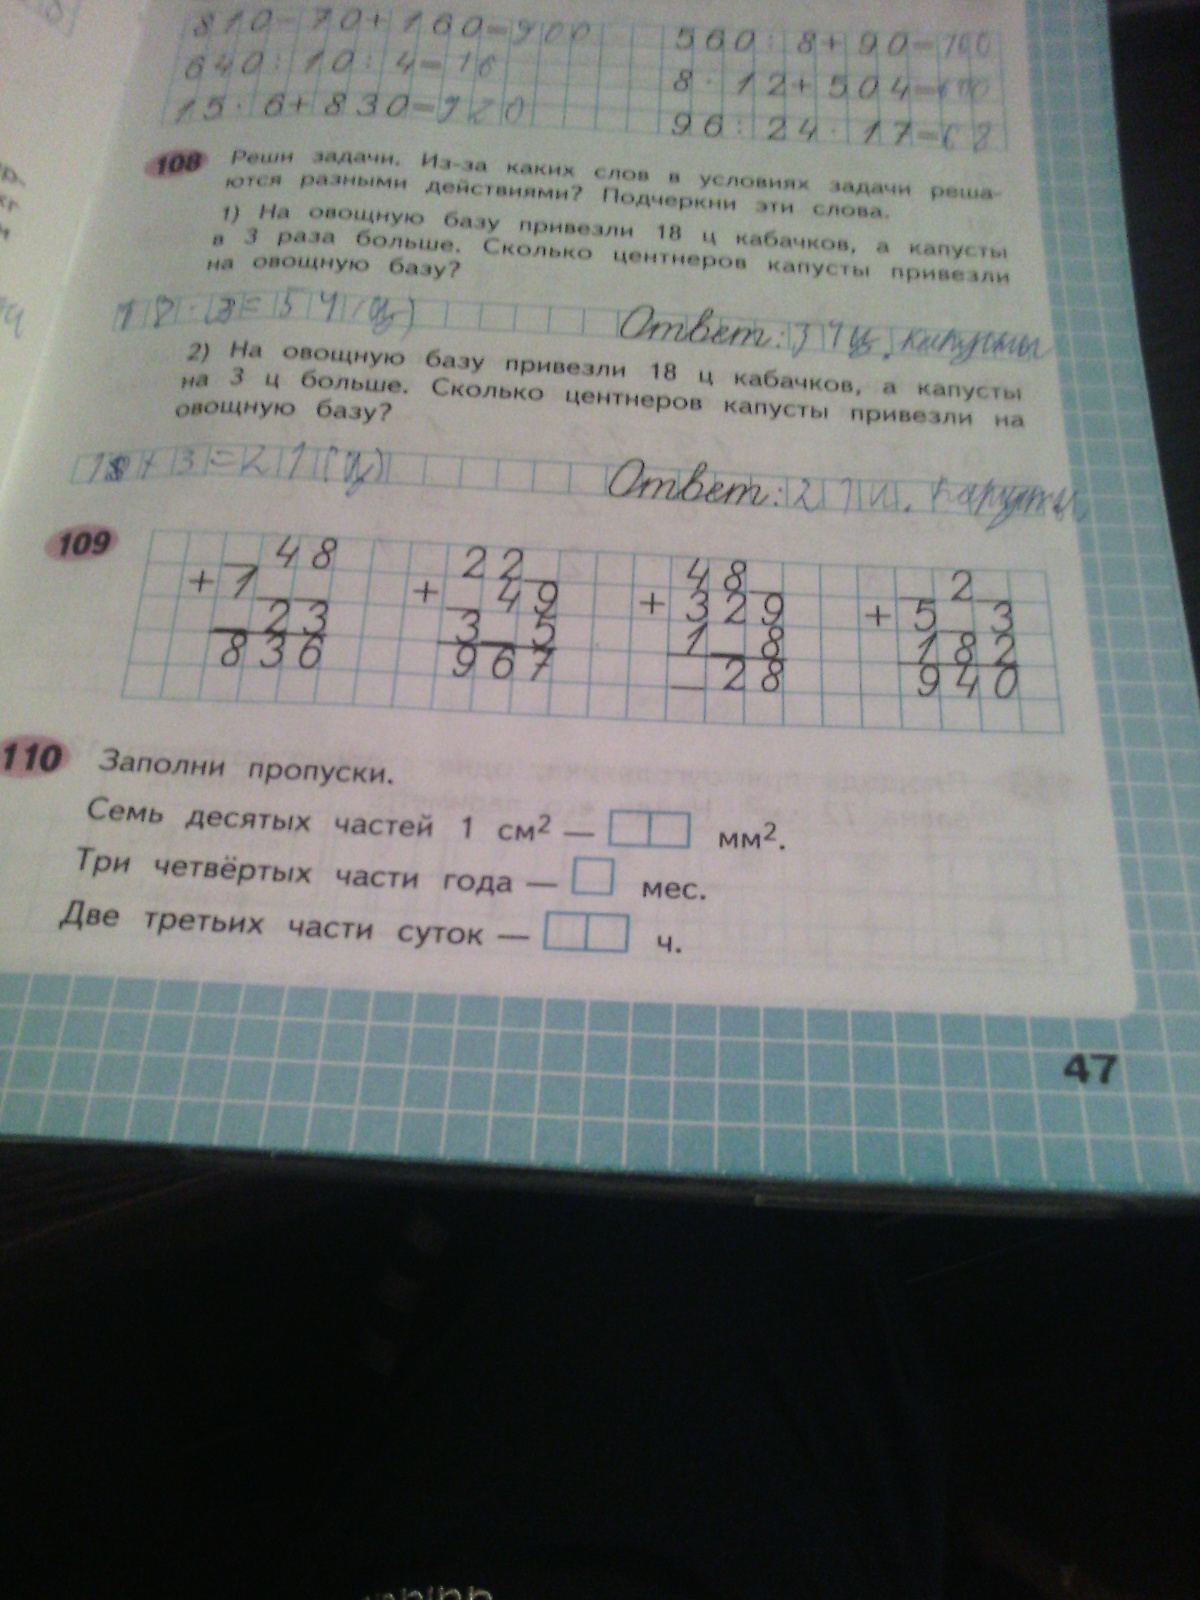 810-70+160=900
560:8+90=160
640:10:4=16
8·12+504=600
15·6+830=920
96:24·17=68
108 Реши задачи. Из-за каких слов в условиях задачи реша-
ются разными действиями? Подчеркни эти слова.
1) На овощную базу привезли 18 ц кабачков, а капусты
в 3 раза больше. Сколько центнеров капусты привезли
на овощную базу?
18·3=54(ц) Ответ: 54ц. капусты
2) На овощную базу привезли 18 ц кабачков, а капусты
на 3 ц больше. Сколько центнеров капусты привезли на
овощную базу?
18+3=21(ц) Ответ: 21ц. капусты
109
_48 22_ 48_ _2_
+ 1__ + _49 + 329 + 5_3
_23 3_5 1_8 182
836 967 _28 940
110 Заполни пропуски.
Семь десятых частей 1 см² — мм².
Три четвёртых части года — мес.
Две третьих части суток — ч.
47